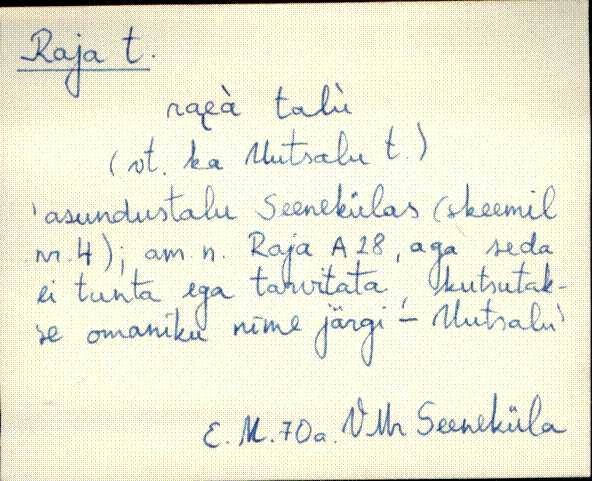 Raja t.
raɐà talù
(vt. ka Uutsalu t.)
'asundustalu Seenekülas (skeemil
nr. 4); am. n. Raja A28, aga seda
ei tunta ega tarvitata, kutsutak-
se omaniku nime järgi – Uutsalu'
E. M. 70a. VMr Seeneküla